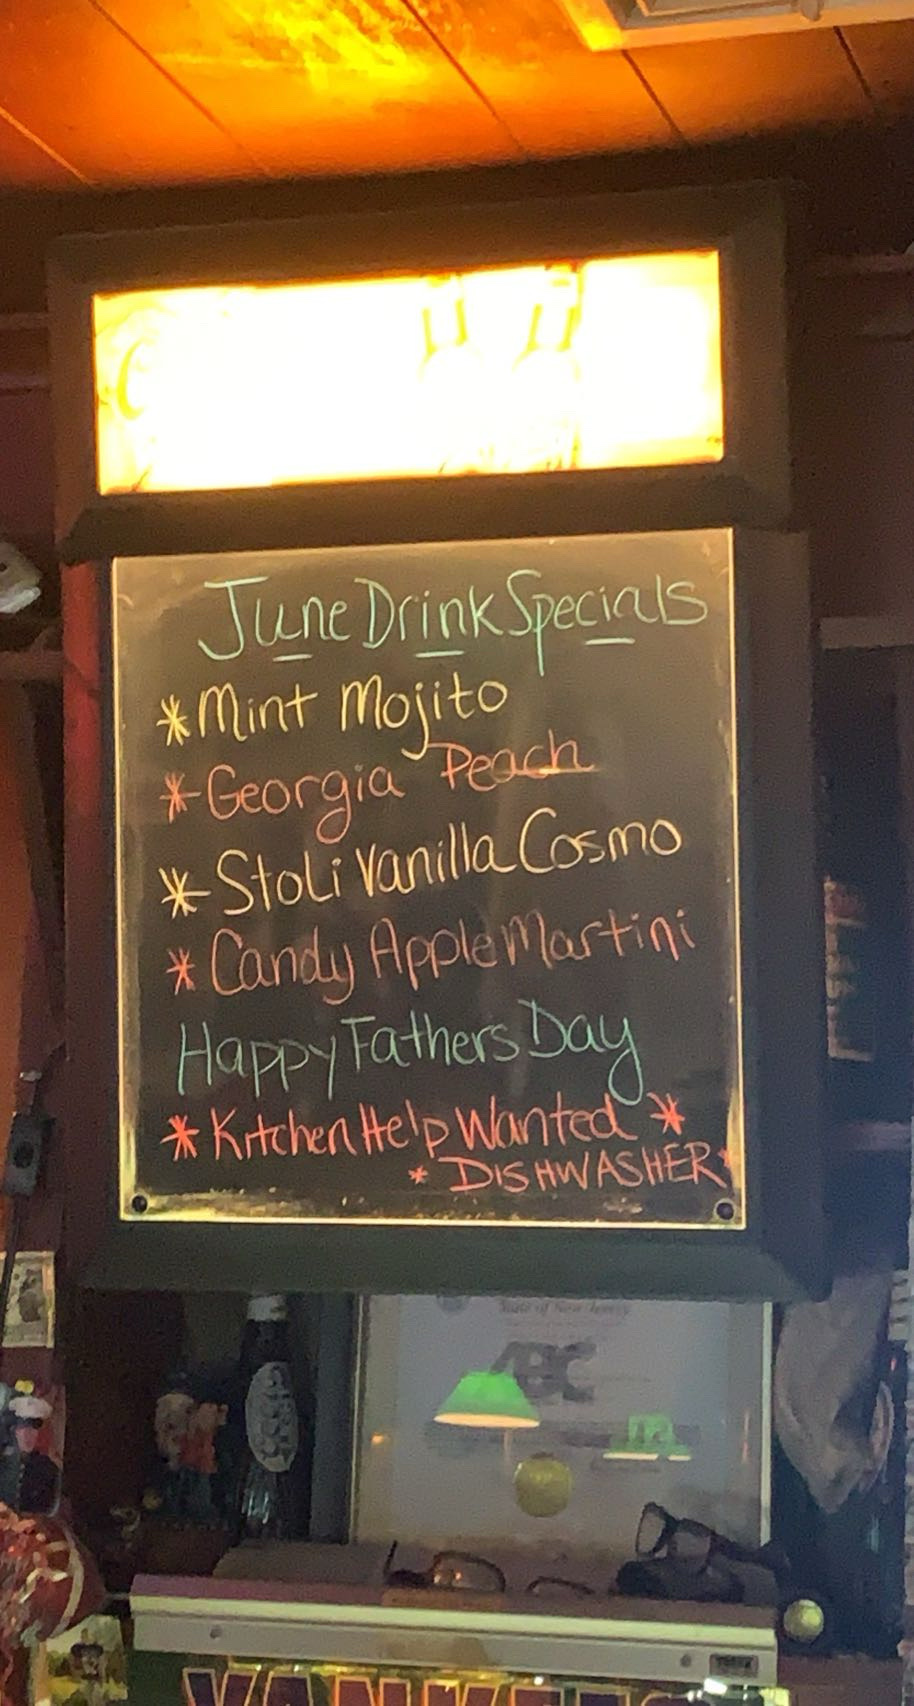 June Drink Specials
*Mint Mojito
*Georgia Peach
*Stoli Vanilla Cosmo
*Candy Apple Martini
Happy Fathers Day
*Kitchen Help Wanted*
*DISHWASHER*
State of New Jersey
ABC
YANKEES